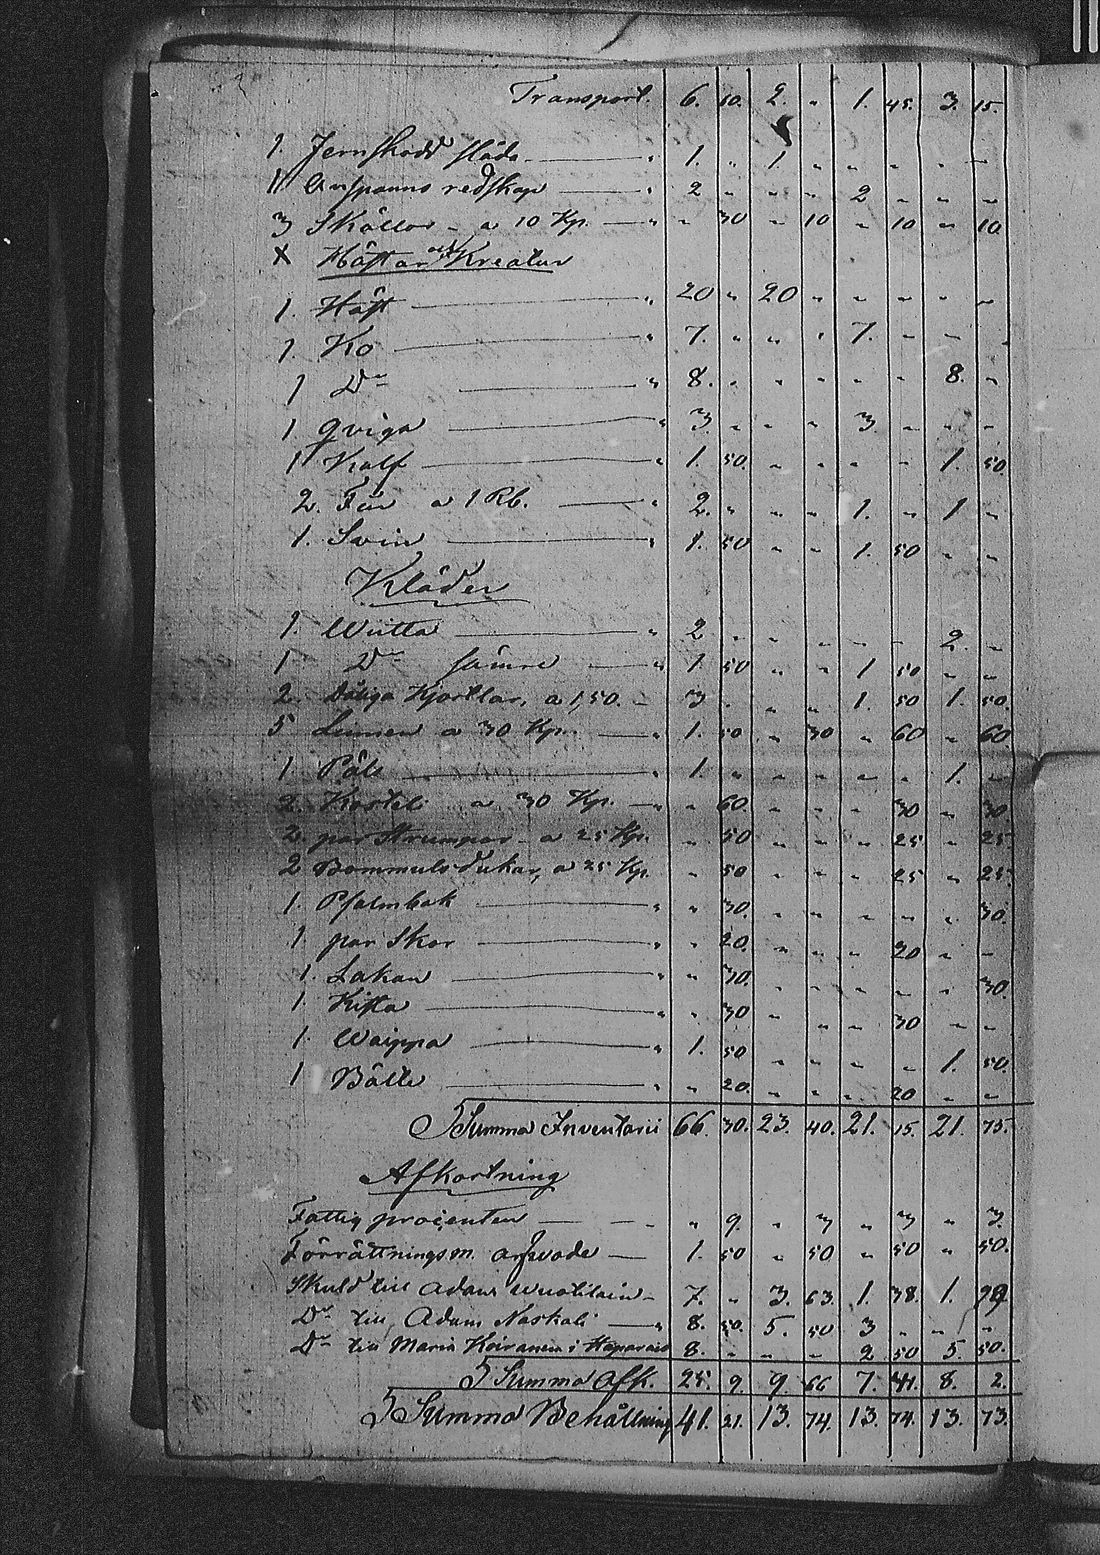 Transport. 6. 60. 2. " 1. 45. 3. 15.
1. Jernskodd släda " 1. " 1 " " " " "
1 Anspanns redskap " 2 " " " 2 " " "
3 Skällor a 10 Kp. " " 30 " 10 " 10 " 10
X Hästar och Kreatur
1. Häst " 20 " 20 " " " " "
1. Ko " 7. " " " 7. " " "
1 Do " 8. " " " " " 8. "
1 Qviga " 3 " " " 3 " " "
1 Kalf " 1. 50. " " " " 1. 50
2. Får a 1 Rb. " 2. " " " 1. " 1 "
1. Svin " 1. 50 " " 1. 50 " "
Kläder
1. " 2 " " " " " 2. "
1 Do sämre " 1. 50 " " 1 50 " "
2. Dåliga Kjortlar, a 1,50. 3 " " " 1. 50 1. 50.
5 Linnen a 30 Kp. 1. 50 " 30 " 60 " 60
1 Päls " 1. " " " " " 1. "
2 a 30 Kp. " 60. " " " 30 " 30
2 par Strumpor a 25 Kp. " 50 " " " 25 " 25
2 Bommulsdukar, a 25 Kp. " 50 " " " 25 " 25
1. Psalmbok " " 30. " " " " " 30.
1 par Skor " " 20. " " " 20 " "
1. Lakan " " 30. " " " " " 30.
1 Kista " " 30 " " " 30 " "
1. Waippa " 1. 50 " " " " 1. 50.
1 Bälte " " 20. " " " 20 " "
Summa Inventarii 66. 30. 23. 40. 21. 15. 21. 75.
Afkortning
Fattig procenten " 9. " 3 " 3 " 3.
Förrättningsm. arfvode 1. 50 " 50 " 50 " 50.
Skuld till Adam 7. " 3. 63. 1. 38. 1. 99
Do till Adam Naskali " 8. 50. 5. 50 3 " " "
Do till Maria Koiranen i Haparand 8. " " " 2 50 5. 50.
Summa Afk. 25. 9. 9. 66 7. 41. 8. 2.
Summa Behållning 41. 21. 13. 74. 13. 74. 13. 73.